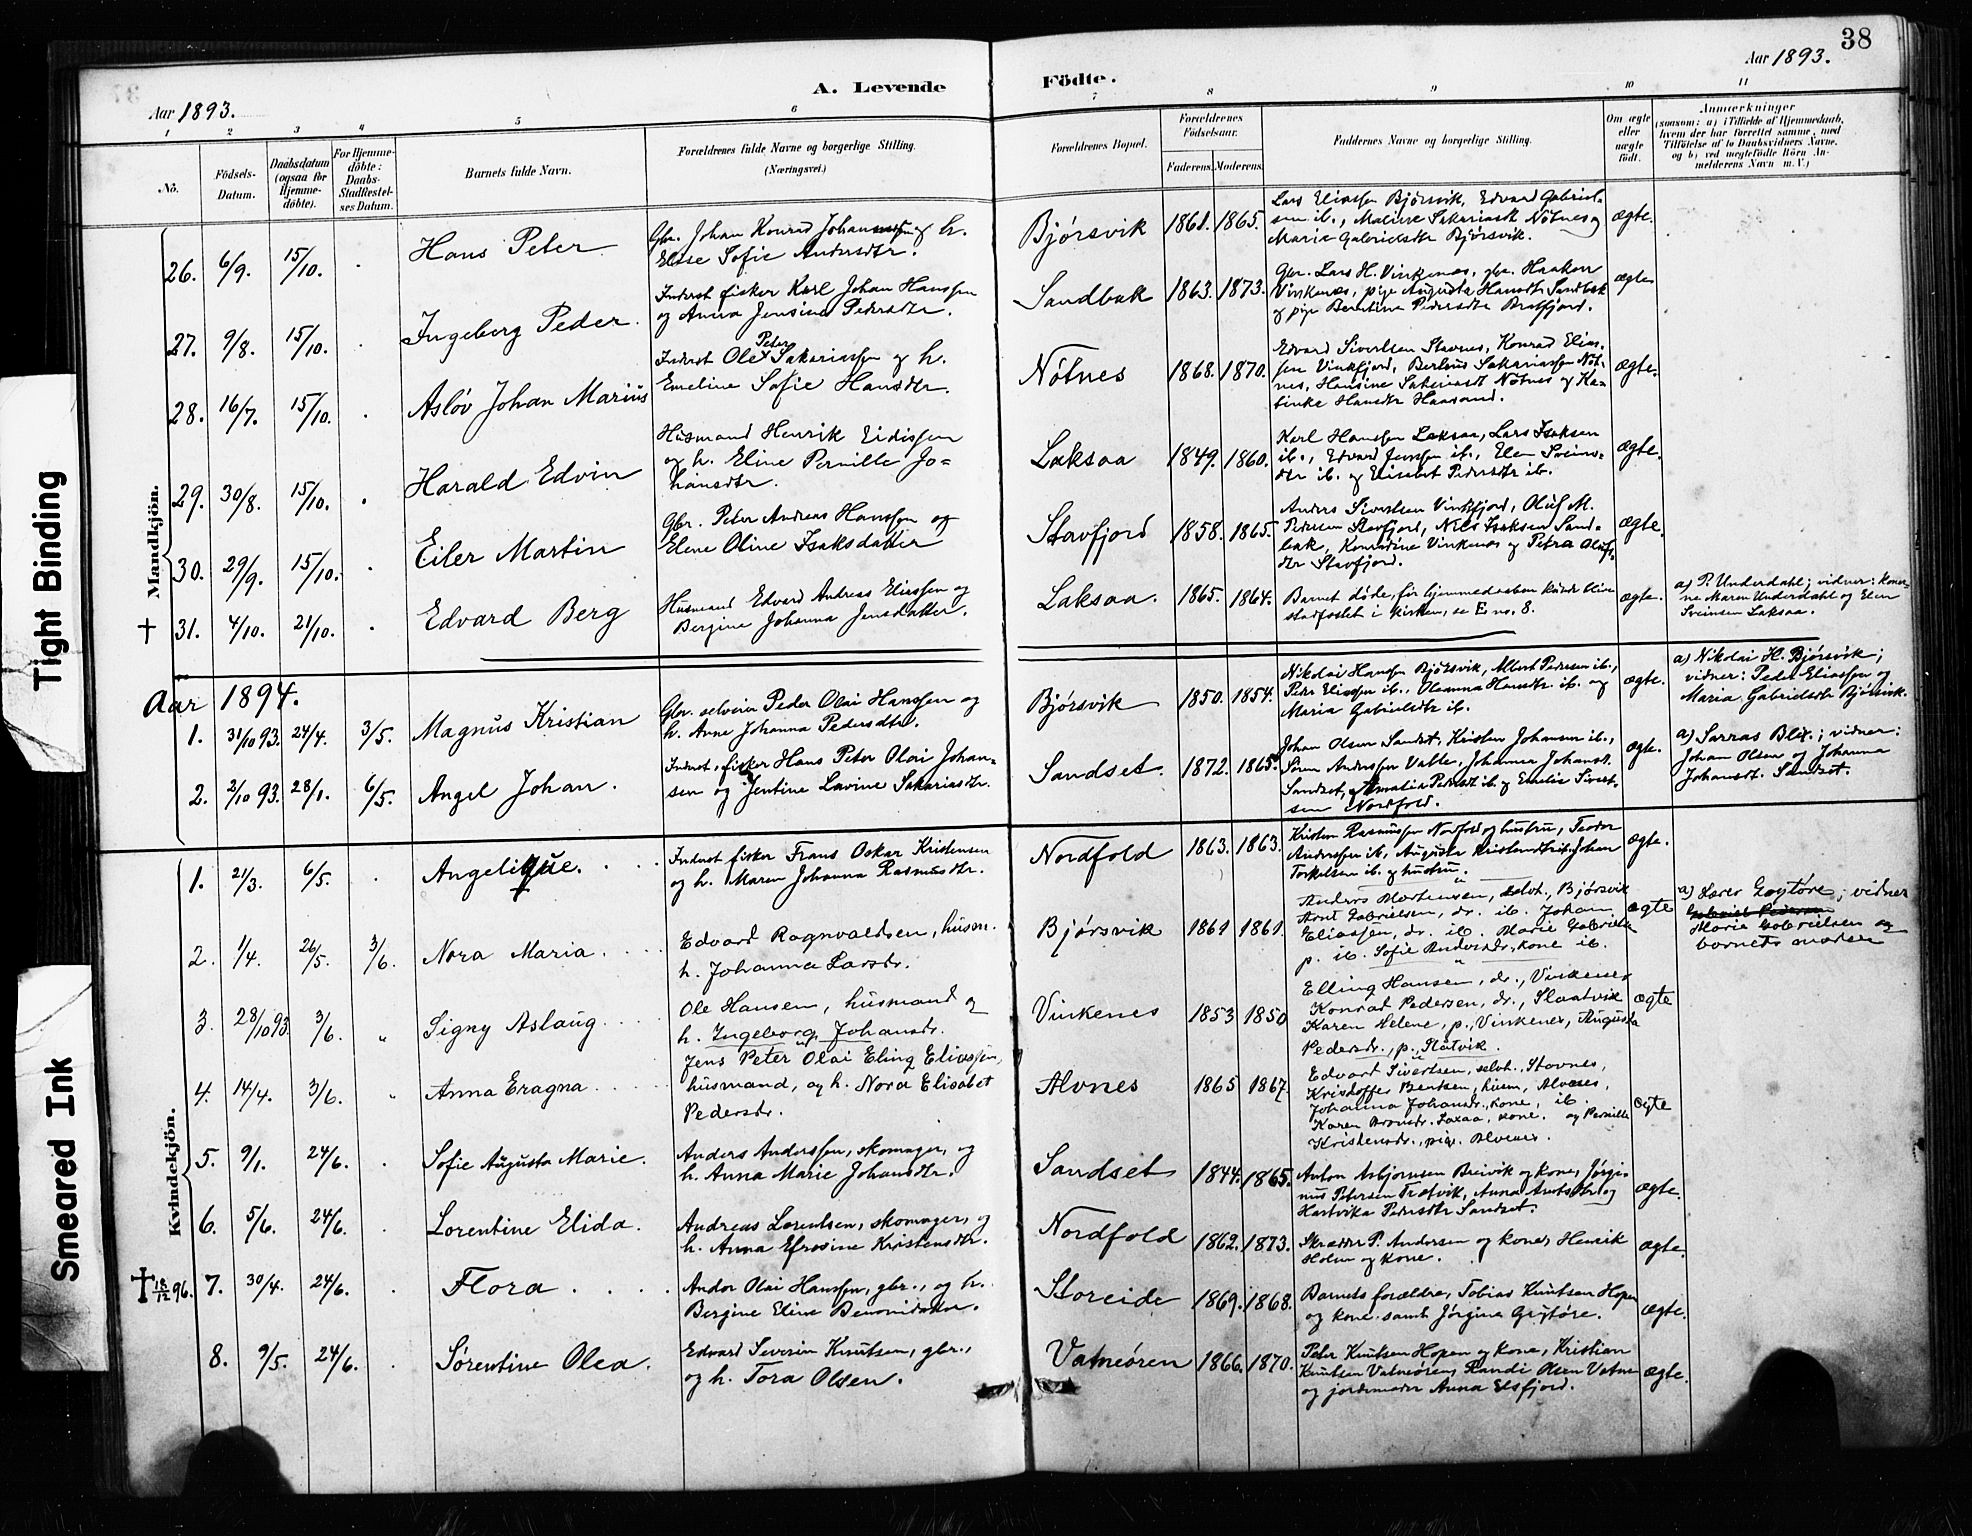 38
Aar 1893.
A. Levende
Födte.
Aar 1893.
1 2 3 4 5 6 7 8 9 10 11
No.
Födsels-
Datum.
Daabsdatum
(ogsaa for
Hjemme-
döbte).
For Hjemme-
döbte:
Daabs-
Stadfæstel-
ses Datum.
Barnets fulde Navn.
Forældrenes fulde Navne og borgerlige Stilling.
(Næringsvei.)
Forældrenes Bopæl.
Forældrenes
Födselsaar.
Faderens. Moderens.
Faddernes Navne og borgerlige Stilling.
Om ægte
eller
uægte
födt.
Anmærkninger
(saasom: a) i Tilfælde af Hjemmedaab,
hvem der har forrettet samme, med
Tilföielse af to Daabsvidners Navne,
og b) ved uægtefödte Börn An-
melderens Navn m. V.)
Mandkjön.
26. 6/9. 15/10. Hans Peter
Gbr. Johan Konrad Johanssen og h.
Else Sofie Andersdtr.
Bjørsvik 1861. 1865.
Lars Eliassen Bjørsvik, Edvard Gabriel-
sen ib., Maline Sakariasdt Nötnes og
Maria Gabrielsdtr Bjørsvik.
ægte.
27. 9/8. 15/10. Ingeborg Peder.
Inderst fisker Karl Johan Hanssen
og Anna Jensine Pedersdtr.
Sandbak 1863. 1873.
Gbr. Lars H. Vinkenes, gbr. Haakon
Vinkenes, pige Augusta Hansdt Sandbak
og pige Berntine Pedersdtr
ægte
28. 16/7. 15/10. Asløv Johan Marius
Inderst Ole Peter Sakariassen og h.
Emeline Sofie Hansdtr.
Nötnes 1868. 1870.
Edvard Sivertsen Stavnes, Konrad Elias-
sen Vinkfjord, Berteus Sakariassen Nöt-
nes, Hansine Sakariasdt Nötnes og Ka-
tinke Hansdtr Haarsand.
ægte.
29. 30/8. 15/10. Harald Edvin
Husmand Henrik Eidissen
og h. Eline Pernille Jo-
hansdtr.
Laksaa 1849. 1860.
Karl Hanssen Laksaa, Lars Isaksen
ib., Edvard Jenssen ib., Elen Sveins-
dtr ib. og Elisabet Pedersdtr ib.
ægte.
30. 29/9. 15/10. Eiler Martin
Gbr. Peter Andreas Hanssen og
Elene Oline Isaksdatter
Stavfjord 1858. 1865.
Anders Sivertsen Vinkfjord, Oluf M.
Pedersen Stavfjord, Nils Isaksen Sand-
bak, Konradine Vinkenes og Petra Olufs-
dtr Stavfjord.
ægte.
† 31. 4/10. 21/10. Edvard Berg
Husmand Edvard Andreas Eliassen og
Bergine Johanna Jensdatter.
Laksaa. 1865. 1864.
Barnet døde, før hjemmedaaben kunde blive
stadfæstet i kirken, se E no. 8.
ægte.
a) P. Underdahl; vidner: koner-
ne Maren Underdahl og Elen
Sveinsen Laksaa.
Aar 1894.
1. 31/10 93. 24/4. 3/5. Magnus Kristian
Gbr. selveier Peder Olai Hanssen og
h. Anne Johanna Pedersdtr.
Bjørsvik 1850. 1854.
Nikolai Hanssen Bjørsvik, Albert Pedersen ib.,
Peder Eliassen ib., Oleanna Hansdtr ib. og
Maria Gabrielsdtr ib.
ægte.
a) Nikolai H. Bjørsvik;
vidner: Peder Eliassen og
Maria Gabrielsdtr Bjørsvik.
2. 2/10 93. 28/1. 6/5. Angel Johan.
Inderst, fisker Hans Peter Olai Johan-
sen og Jentine Lavine Sakariasdtr.
Sandset. 1872. 1865.
Johan Olsen Sandset, Kristen Johansen ib.,
Sören Anderssen Valle, Johanna Johansdt.
Sandset, Amalia Pedersdt ib. og Emelie Sivert-
sen Nordfold.
ægte.
a) Sarras Blix; vidner:
Johan Olsen og Johanna
Johansdt. Sandset.
Kvindekjön.
1. 21/3. 6/5. Angelique.
Inderst fisker Frans Oskar Kristensen
og h. Maren Johanna Rasmusdtr.
Nordfold 1863. 1863.
Kristen Rasmussen Nordfold og hustru, Teodor
Anderssen ib., Augusta Kristensdtr ib. Johan
Torkelsen ib. og hustru.
ægte.
2. 1/4. 26/5. 3/6. Nora Maria.
Edvard Ragnvaldsen, husm.
h. Johanna Larsdr.
Bjørsvik 1861 1861.
Anders Mortensen, selvt., Bjørsvik
Arnt Gabrielsen, dr. ib. Johan
Eliassen, dr. ib. Marie Gabrielsdr
p. ib. Sofie Andersdr, kone ib.
ægte
a) Lærer Grytøre; vidner
Marie Gabrielsen og
barnets moder
3. 28/10 93 3/6. „ Signy Aslaug.
Ole Hansen, husmand og
h. Ingeborg Johansdr.
Vinkenes 1853 1850
Elling Hansen, dr., Vinkenes
Konrad Pedersen, dr., Slaatvik
Karen Helene, p., Vinkenes, Augusta
Pedersdr., p., Slåtvik.
ægte
4. 14/4. 3/6. „ Anna Eragna
Jens Peter Olai Eling Eliassen,
husmand, og h. Nora Elisabet
Pedersdr.
Alvnes 1865 1867.
Edvard Sivertsen, selvt., Stavnes,
Kristoffer Bentsen, husm, Alvnes,
Johanna Johansdr., kone, ib.
Karen Laxaa, kone. og Pernille
Kristensdr., pige. Alvnes.
ægte
5. 9/1. 24/6. Sofie Augusta Marie.
Anders Anderssen, skomager, og
h. Anna Marie Johansdtr.
Sandset 1844. 1865.
Anton Asbjørnsen Breivik og kone, Jørgi-
nus Petersen Trætvik, Anna Arntsdtr og
Hartvika Pedersdtr Sandset.
ægte.
6. 5/6. 24/6. Lorentine Elida.
Andreas Lorentsen, skomager, og
h. Anna Efrosine Kristensdtr.
Nordfold 1862. 1873.
Skrædder P. Andersen og kone, Henrik
Holm og kone.
ægte.
† 18/12 96. 7. 30/4. 24/6. Flora
Andor Olai Hanssen, gbr., og h.
Bergine Eline Benonidatter.
Storeide 1869. 1868.
Barnets forældre, Tobias Knutsen Hopen
og kone samt Jørgine Grytøre.
ægte.
8. 9/5. 24/6. Sørentine Olea.
Edvard Severin Knutsen, gbr.,
og h. Tora Olsen.
Vatneøren 1866. 1870.
Peter Knutsen Hopen og kone, Kristian
Knutsen Vatneøren, Randi Olsen Vatne
og jordemoder Anna Elsfjord.
ægte.
Tight Binding
Smeared Ink